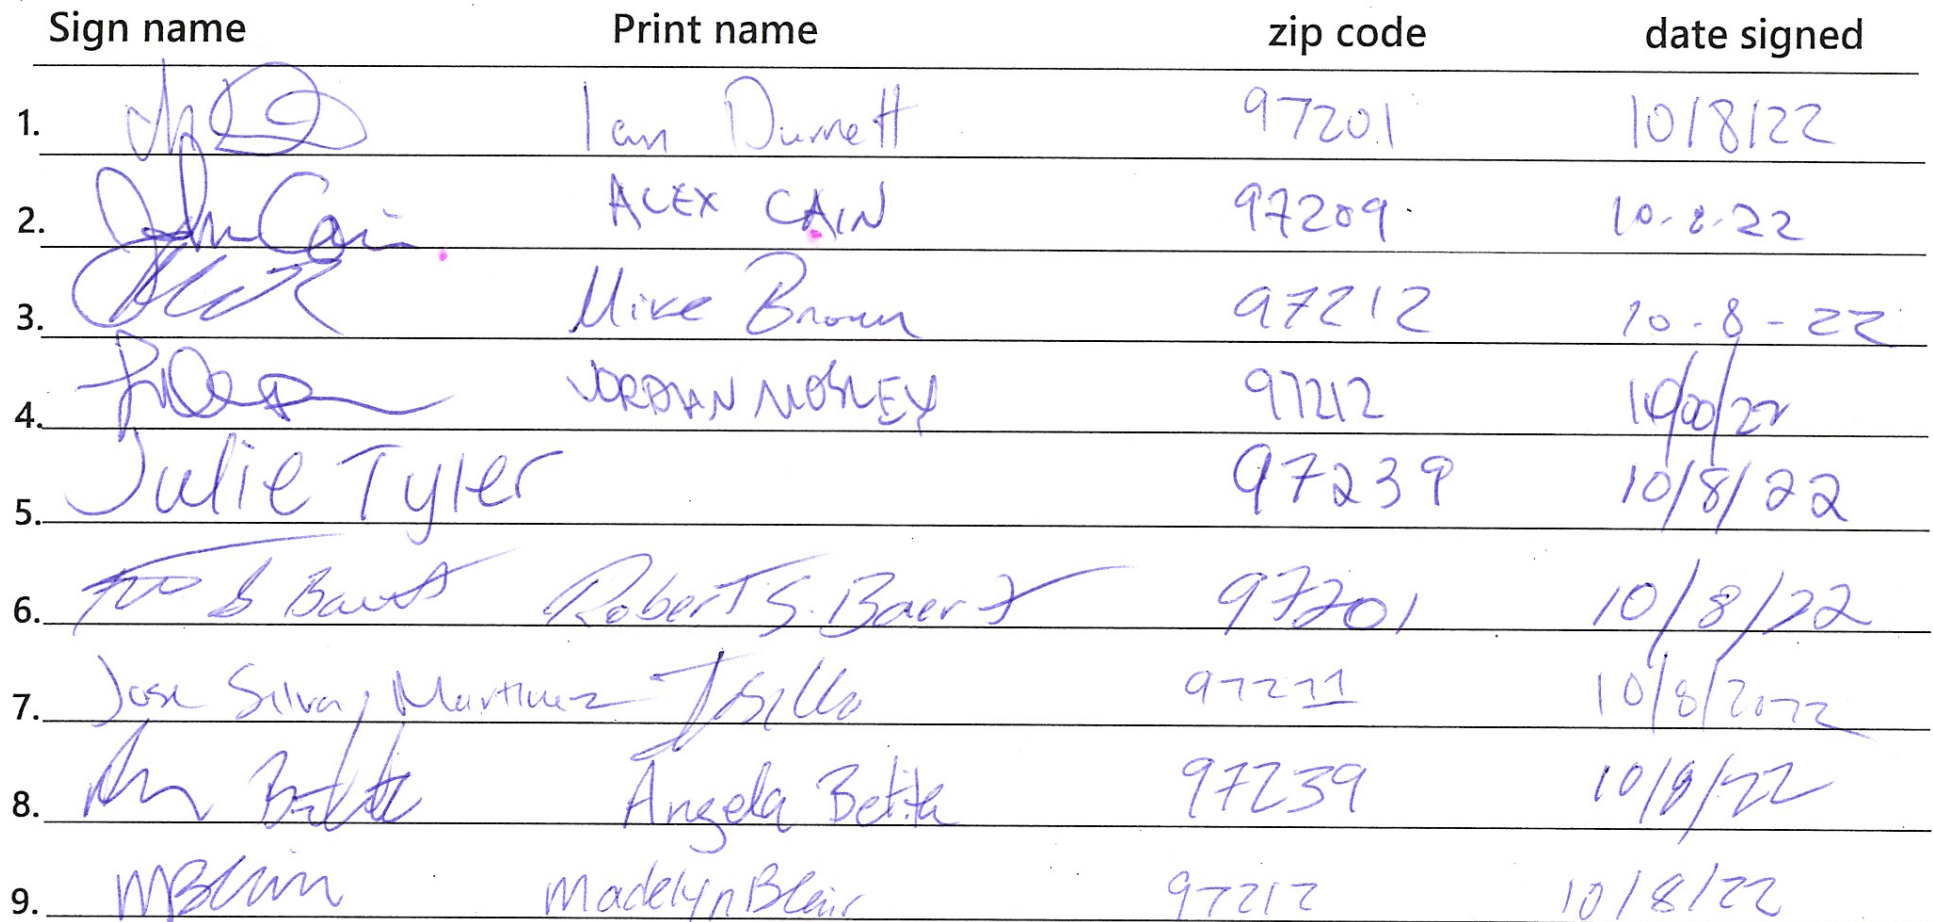 Sign name Print name zip code date signed
1. Ian Durrett 97201 10/8/22
2. John Cain ALEX CAIN 97209 10-8-22
3. Mike Brown 97212 10-8-22
4. JORDAN MOSLEY 97212 22
5. Julie Tyler 97239 10/8/22
6. Baert Robert S. Baert 97201 10/8/22
7. Jose Silva Martinez 97211 10/8/2022
8. Angela Betita 97239 10/8/22
9. MBlair Madelyn Blair 97212 10/8/22